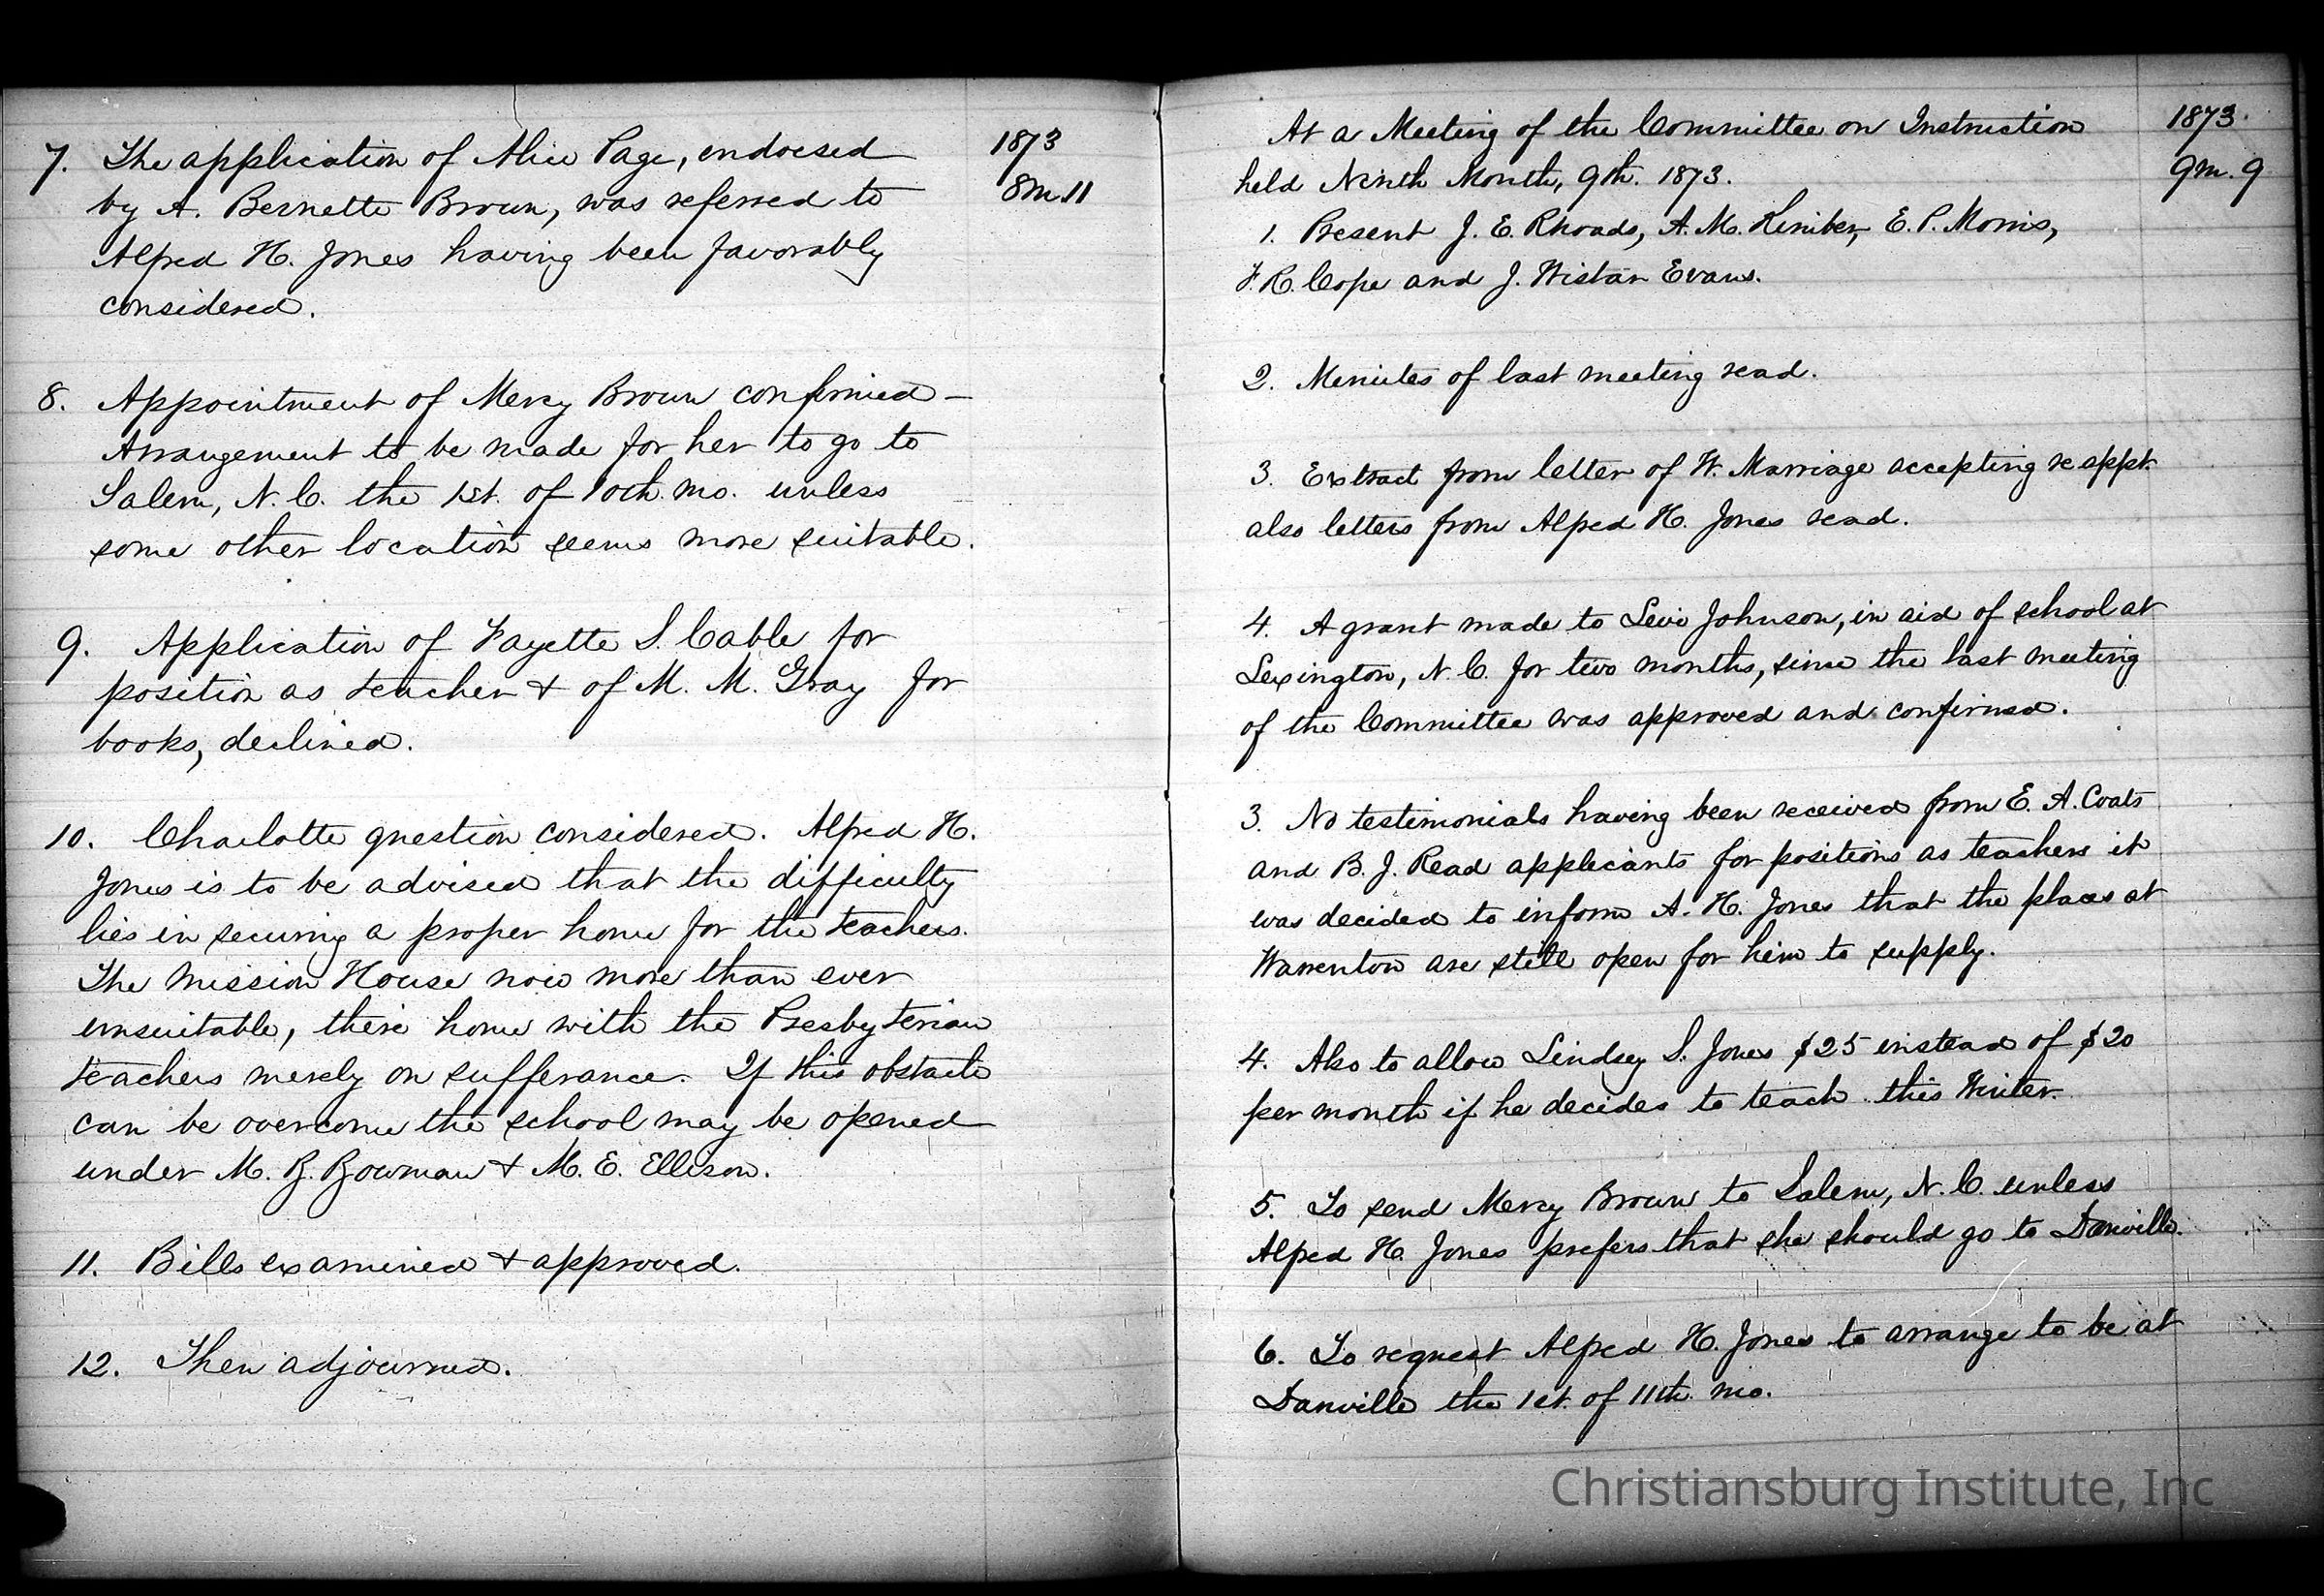 1873
8m.11
7. The application of Alice Page, endorsed
by A. Bernette Brown, was referred to
Alfred H. Jones having been favorably
considered.
8. Appointment of Mercy Brown confirmed -
Arrangement to be made for her to go to
Salem, N.C. the 1st. of 10th. mo. unless
some other location seems more suitable.
9. Application of Fayette S. Cable for
position as teacher & of M. M. Gray for
books, declined.
10. Charlotte question considered. Alfred H.
Jones is to be advised that the difficulty
lies in securing a proper home for the teachers.
The Mission House now more than ever
unsuitable, their home with the Presbyterian
teachers merely on sufferance. If this obstacle
can be overcome the school may be opened
under M. B. Bowman & M. E. Ellison.
11. Bills examined & approved.
12. Then adjourned.
1873.
9m. 9
At a Meeting of the Committee on Instruction
held Ninth Month, 9th. 1873.
1. Present J. E. Rhoads, A. M. Kimber, E. P. Morris,
F. R. Cope and J. Wistar Evans.
2. Minutes of last meeting read.
3. Extract from letter of W. Marriage accepting reappt.
also letters from Alfred H. Jones read.
4. A grant made to Levi Johnson, in aid of school at
Lexington, N.C. for two months, since the last meeting
of the Committee was approved and confirmed.
3. No testimonials having been received from E. A. Coats
and B. J. Read applicants for positions as teachers it
was decided to inform A. H. Jones that the places at
Warrenton are still open for him to supply.
4. Also to allow Lindsey S. Jones $25 instead of $20
per month if he decides to teach this Winter.
5. To send Mercy Brown to Salem, N.C. unless
Alfred H. Jones prefers that she should go to Danville.
6. To request Alfred H. Jones to arrange to be at
Danville the 1st. of 11th. mo.
Christiansburg Institute, Inc